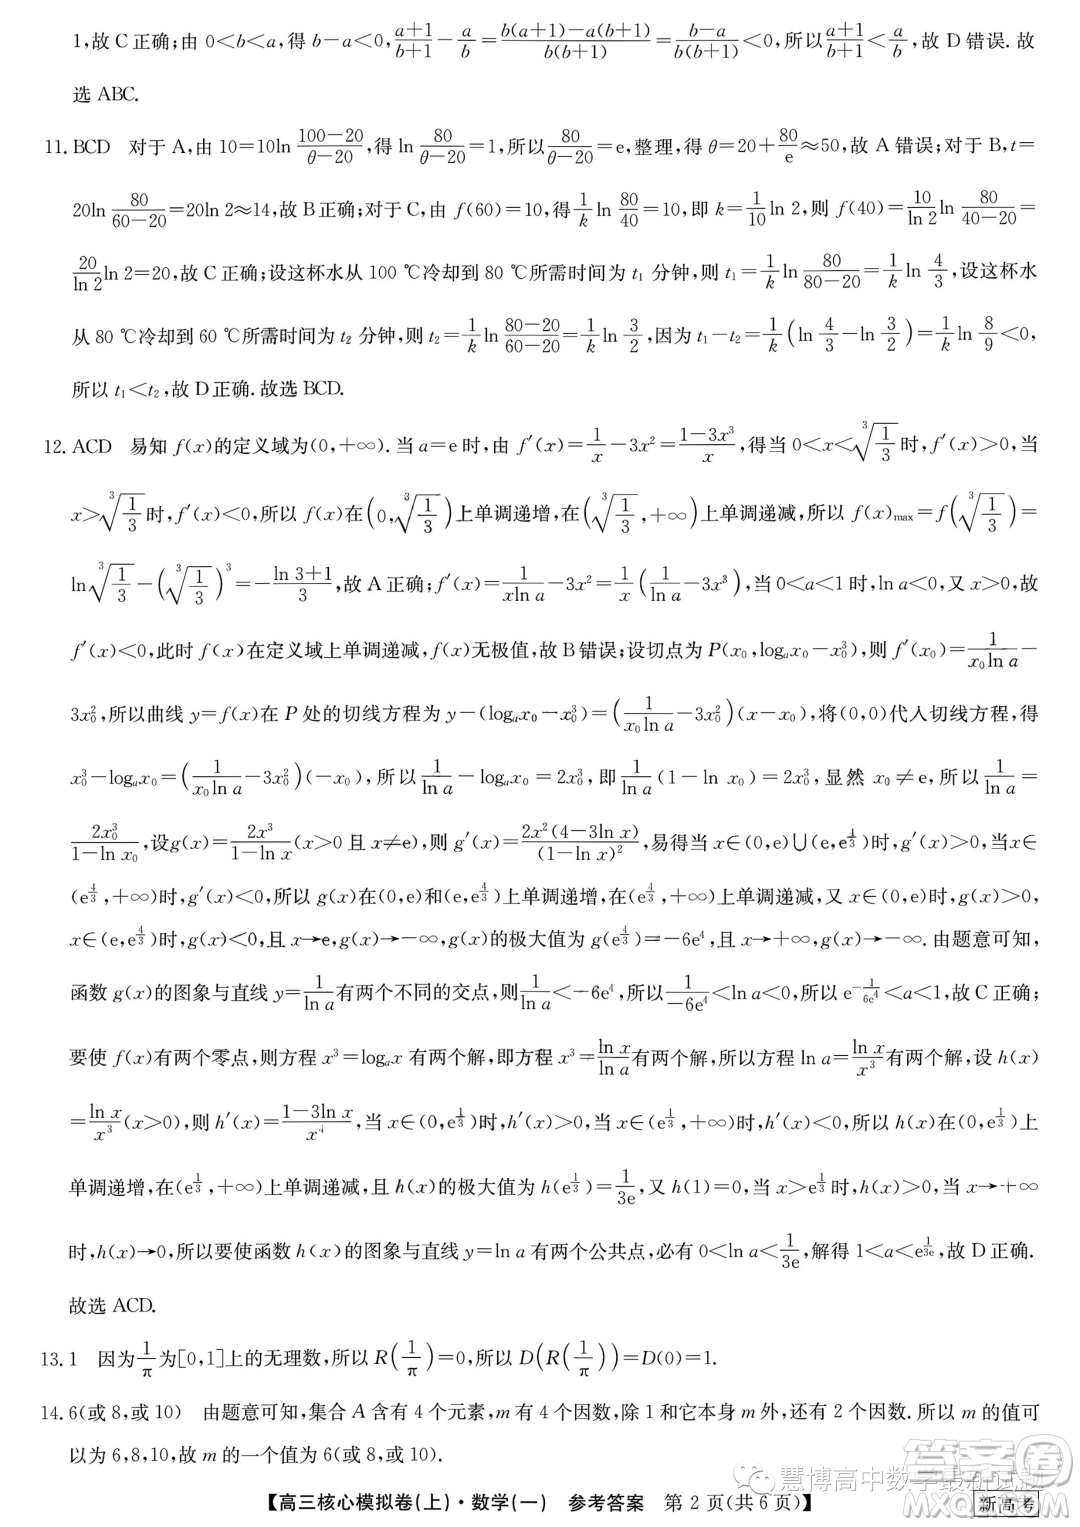 1,故 C 正确;由 0<b<a,得 b-a<0,\frac{a+1}{b+1}-\frac{a}{b}=\frac{b(a+1)-a(b+1)}{b(b+1)}=\frac{b-a}{b(b+1)}<0,所以\frac{a+1}{b+1}<\frac{a}{b},故 D 错误.故
选 ABC.
11.BCD 对于 A,由 10=10ln\frac{100-20}{θ-20},得 ln\frac{80}{θ-20}=1,所以\frac{80}{θ-20}=e,整理,得 θ=20+\frac{80}{e}≈50,故 A 错误;对于 B,t=
20ln\frac{80}{60-20}=20ln 2≈14,故 B 正确;对于 C,由 f(60)=10,得\frac{1}{k}ln\frac{80}{40}=10,即 k=\frac{1}{10}ln 2,则 f(40)=\frac{10}{ln 2}ln\frac{80}{40-20}=
\frac{20}{ln 2}ln 2=20,故 C 正确;设这杯水从 100 ℃冷却到 80 ℃所需时间为 t₁ 分钟,则 t₁=\frac{1}{k}ln\frac{80}{80-20}=\frac{1}{k}ln\frac{4}{3},设这杯水
从 80 ℃冷却到 60 ℃所需时间为 t₂ 分钟,则 t₂=\frac{1}{k}ln\frac{80-20}{60-20}=\frac{1}{k}ln\frac{3}{2},因为 t₁-t₂=\frac{1}{k}(ln\frac{4}{3}-ln\frac{3}{2})=\frac{1}{k}ln\frac{8}{9}<0,
所以 t₁<t₂,故 D 正确.故选 BCD.
12.ACD 易知 f(x)的定义域为(0,+∞).当 a=e 时,由 f′(x)=\frac{1}{x}-3x²=\frac{1-3x³}{x},得当 0<x<\sqrt[3]{\frac{1}{3}}时,f′(x)>0,当
x>\sqrt[3]{\frac{1}{3}}时,f′(x)<0,所以 f(x)在(0,\sqrt[3]{\frac{1}{3}})上单调递增,在(\sqrt[3]{\frac{1}{3}},+∞)上单调递减,所以 f(x)_{max}=f(\sqrt[3]{\frac{1}{3}})=
ln\sqrt[3]{\frac{1}{3}}-(\sqrt[3]{\frac{1}{3}})³=-\frac{ln 3+1}{3},故 A 正确;f′(x)=\frac{1}{xln a}-3x²=\frac{1}{x}(\frac{1}{ln a}-3x³),当 0<a<1 时,ln a<0,又 x>0,故
f′(x)<0,此时 f(x)在定义域上单调递减,f(x)无极值,故 B 错误;设切点为 P(x₀,logₐx₀-x₀³),则 f′(x₀)=\frac{1}{x₀ln a}-
3x₀²,所以曲线 y=f(x)在 P 处的切线方程为 y-(logₐx₀-x₀³)=(\frac{1}{x₀ln a}-3x₀²)(x-x₀),将(0,0)代入切线方程,得
x₀³-logₐx₀=(\frac{1}{x₀ln a}-3x₀²)(-x₀),所以\frac{1}{ln a}-logₐx₀=2x₀³,即\frac{1}{ln a}(1-ln x₀)=2x₀³,显然 x₀≠e,所以\frac{1}{ln a}=
\frac{2x₀³}{1-ln x₀},设g(x)=\frac{2x³}{1-ln x}(x>0 且 x≠e),则 g′(x)=\frac{2x²(4-3ln x)}{(1-ln x)²},易得当 x∈(0,e)∪(e,e^{\frac{4}{3}})时,g′(x)>0,当x∈
(e^{\frac{4}{3}},+∞)时,g′(x)<0,所以 g(x)在(0,e)和(e,e^{\frac{4}{3}})上单调递增,在(e^{\frac{4}{3}},+∞)上单调递减,又 x∈(0,e)时,g(x)>0,
x∈(e,e^{\frac{4}{3}})时,g(x)<0,且 x→e,g(x)→-∞,g(x)的极大值为 g(e^{\frac{4}{3}})=-6e⁴,当 x→+∞,g(x)→-∞.由题意可知,
函数 g(x)的图象与直线 y=\frac{1}{ln a}有两个不同的交点,则\frac{1}{ln a}<-6e⁴,所以\frac{1}{-6e⁴}<ln a<0,所以 e^{-\frac{1}{6e⁴}}<a<1,故 C 正确;
要使 f(x)有两个零点,则方程 x³=logₐx 有两个解,即方程 x³=\frac{ln x}{ln a}有两个解,所以方程 ln a=\frac{ln x}{x³}有两个解,设 h(x)
=\frac{ln x}{x³}(x>0),则 h′(x)=\frac{1-3ln x}{x⁴},当 x∈(0,e^{\frac{1}{3}})时,h′(x)>0,当 x∈(e^{\frac{1}{3}},+∞)时,h′(x)<0,所以 h(x)在(0,e^{\frac{1}{3}})上
单调递增,在(e^{\frac{1}{3}},+∞)上单调递减,且 h(x)的极大值为 h(e^{\frac{1}{3}})=\frac{1}{3e},又 h(1)=0,当 x>e^{\frac{1}{3}}时,h(x)>0,当 x→+∞
时,h(x)→0,所以要使函数 h(x)的图象与直线 y=ln a 有两个公共点,必有 0<ln a<\frac{1}{3e},解得 1<a<e^{\frac{1}{3e}},故 D 正确.
故选 ACD.
13.1 因为\frac{1}{π}为[0,1]上的无理数,所以 R(\frac{1}{π})=0,所以 D(R(\frac{1}{π}))=D(0)=1.
14.6(或 8,或 10) 由题意可知,集合 A 含有 4 个元素,m 有 4 个因数,除 1 和它本身 m 外,还有 2 个因数.所以 m 的值可
以为 6,8,10,故 m 的一个值为 6(或 8,或 10).
慧博高中数学最新试题
答案圈
MXQE.COM
【高三核心模拟卷(上)·数学(一) 参考答案 第 2 页(共 6 页)】
新高考